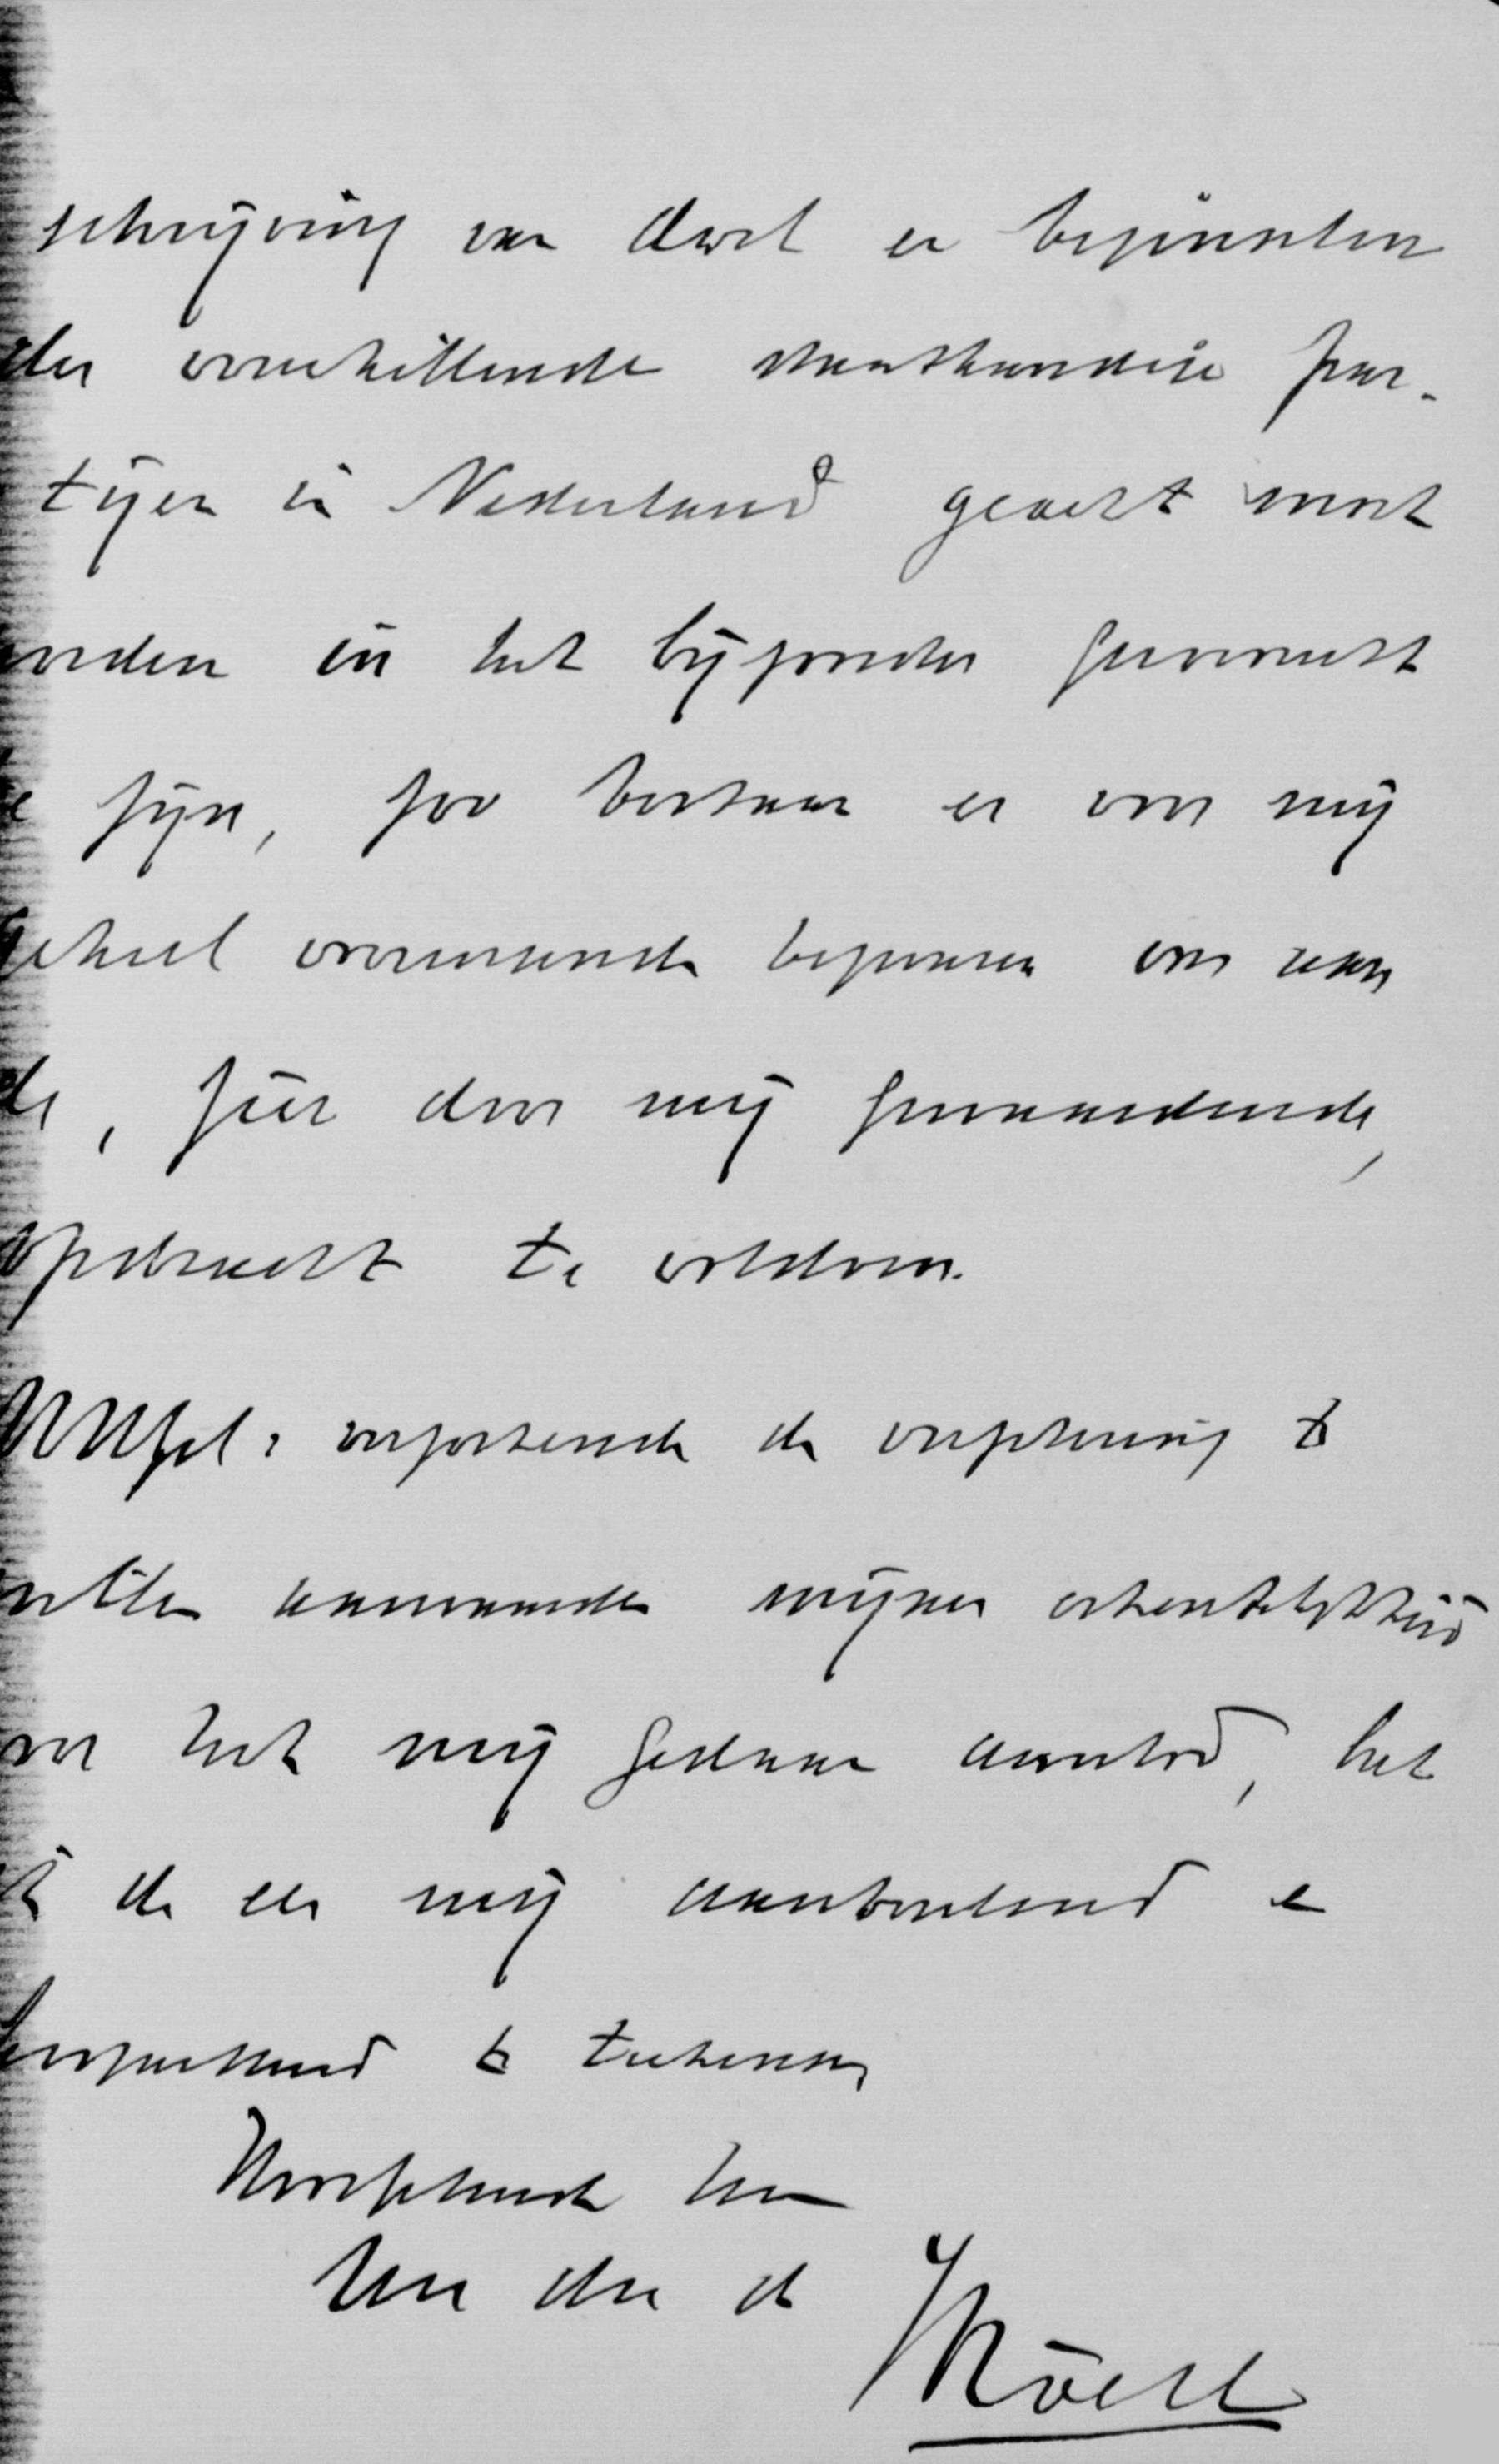 schrijving van doel en beginselen
der verschillende staatkundige par-
tijen in Nederland geacht moet
worden in het bijzonder gewenscht
te zijn, zoo bestaan er voor mij
geheel overwegende bezwaren om aan
de, zeer door mij gewaardeerde,
opdracht te voldoen.
de verzekering te
willen aanvaarden mijner erkentelijkheid
voor het mij gedaan aanbod, heb
ik de eer mij aanbevelend en
hoogachtend te teekenen
Hooggeleerde Heer
Uw dw d
Röell